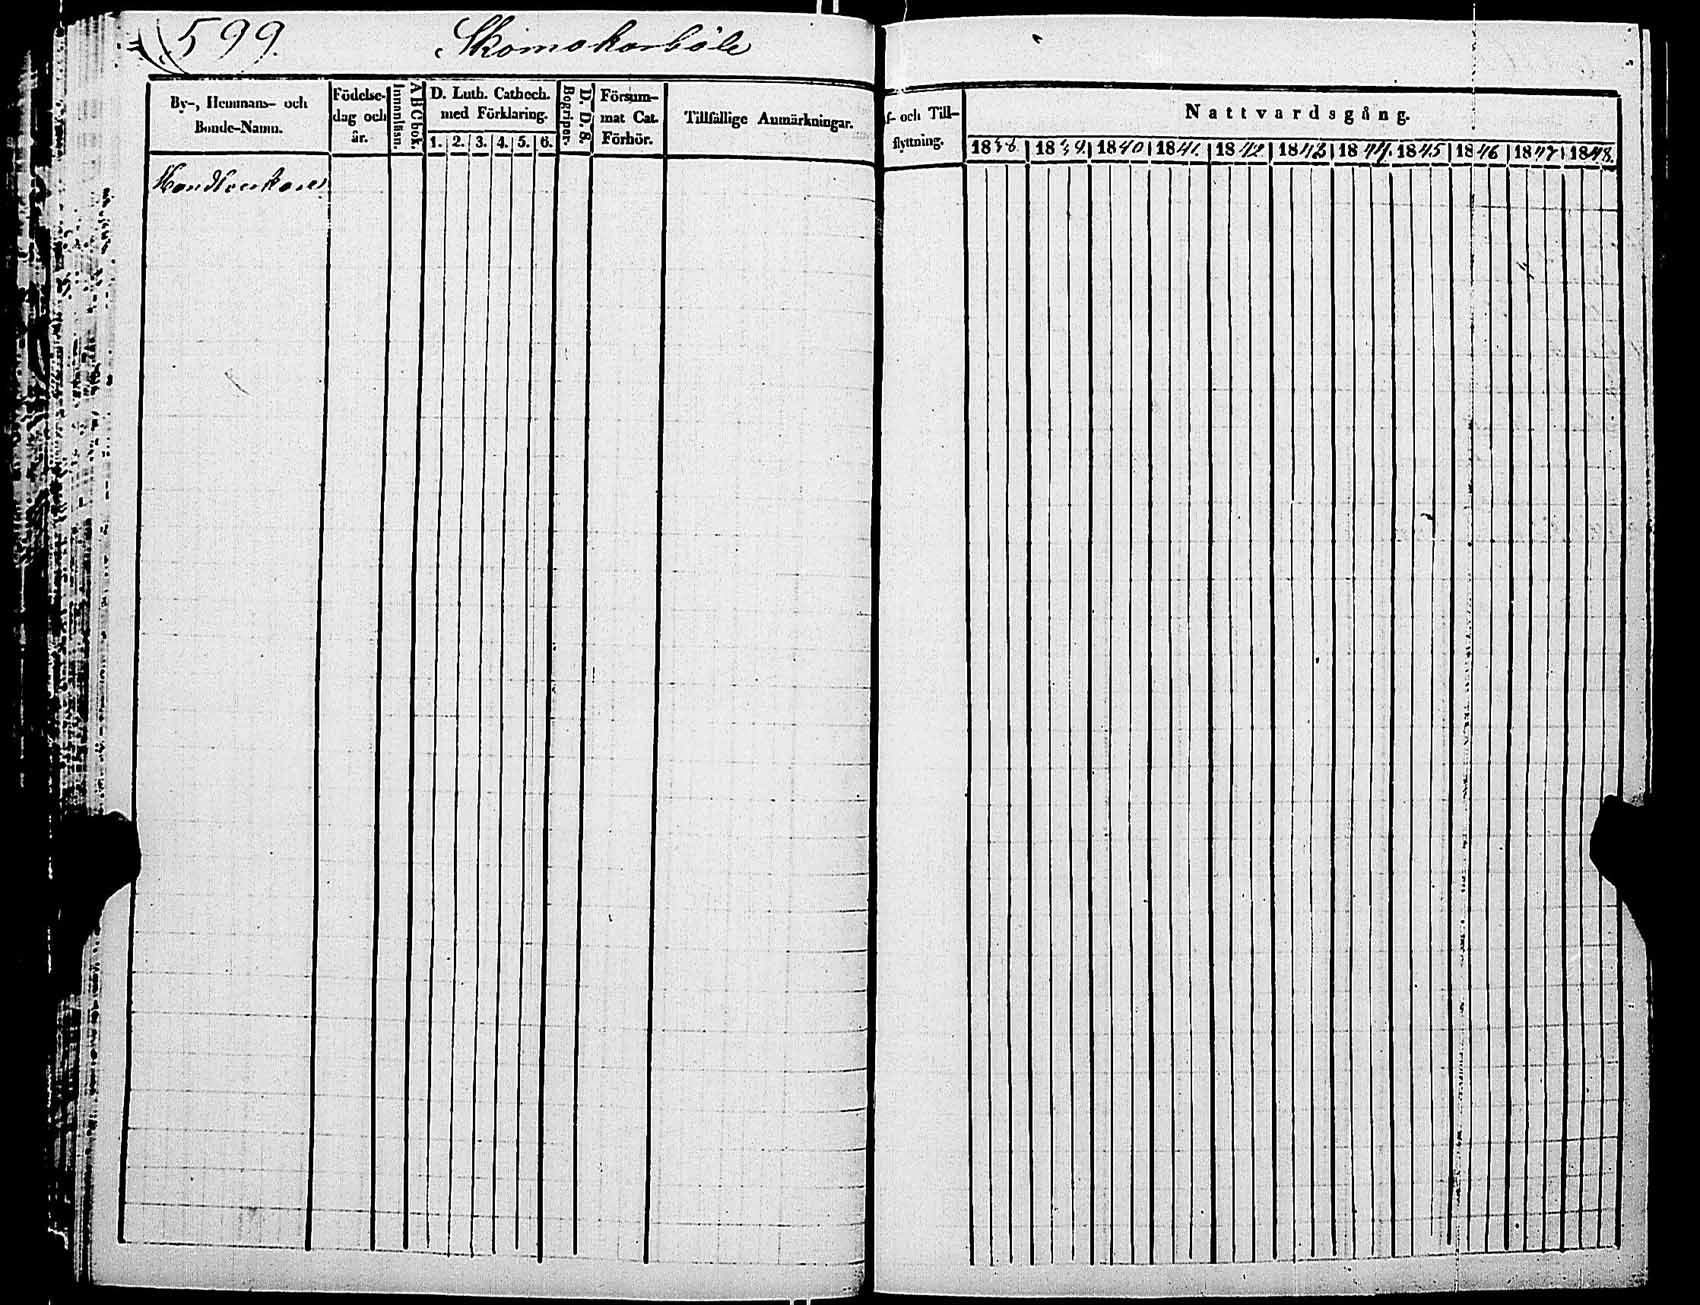 599. Skomakarböle
By-, Hemmans- och Bonde-Namn.
Födelse-dag och år.
Innanläsn.
A B C bok.
D. Luth. Cathech. med Förklaring.
1. 2. 3. 4. 5. 6.
Begriper.
D. D. S.
Försummat Cat. Förhör.
Tillfällige Anmärkningar.
f- och Till-flyttning.
Nattvardsgång.
1838 1839. 1840 1841. 1842 1843 1844. 1845 1846 1847 1848.
Handtverkare